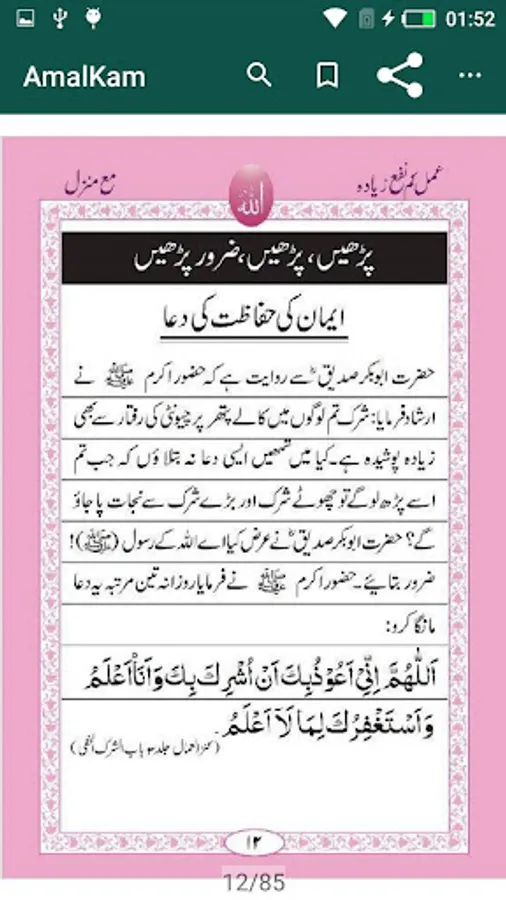 01:52
AmalKam
عمل کم نفع زیادہ
مع منزل
الله
پڑھیں، پڑھیں، ضرور پڑھیں
ایمان کی حفاظت کی دعا
حضرت ابوبکر صدیقؓ سے روایت ہے کہ حضور اکرم ﷺ نے
ارشاد فرمایا: شرک تم لوگوں میں کالے پتھر پر چیونٹی کی رفتار سے بھی
زیادہ پوشیدہ ہے۔ کیا میں تمھیں ایسی دعا نہ بتلاؤں کہ جب تم
اسے پڑھ لو گے تو چھوٹے شرک اور بڑے شرک سے نجات پا جاؤ
گے؟ حضرت ابوبکر صدیقؓ نے عرض کیا اے اللہ کے رسول (ﷺ)!
ضرور بتائیے۔ حضور اکرم ﷺ نے فرمایا روزانہ تین مرتبہ یہ دعا
مانگا کرو:
اَللّٰهُمَّ اِنِّيْ اَعُوْذُ بِكَ اَنْ اُشْرِكَ بِكَ وَاَنَا اَعْلَمُ
وَاَسْتَغْفِرُكَ لِمَا لَآ اَعْلَمُ۔
(کنز اعمال جلد سوم باب الشرک الخفی)
۱۲
12/85